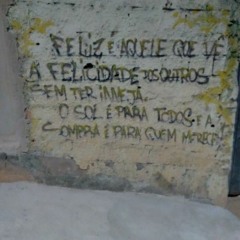 FELIZ É AQUELE QUE VÊ
A FELICIDADE DOS OUTROS
SEM TER INVEJA.
O SOL É PARA TODOS E A
SOMBRA É PARA QUEM MERECE